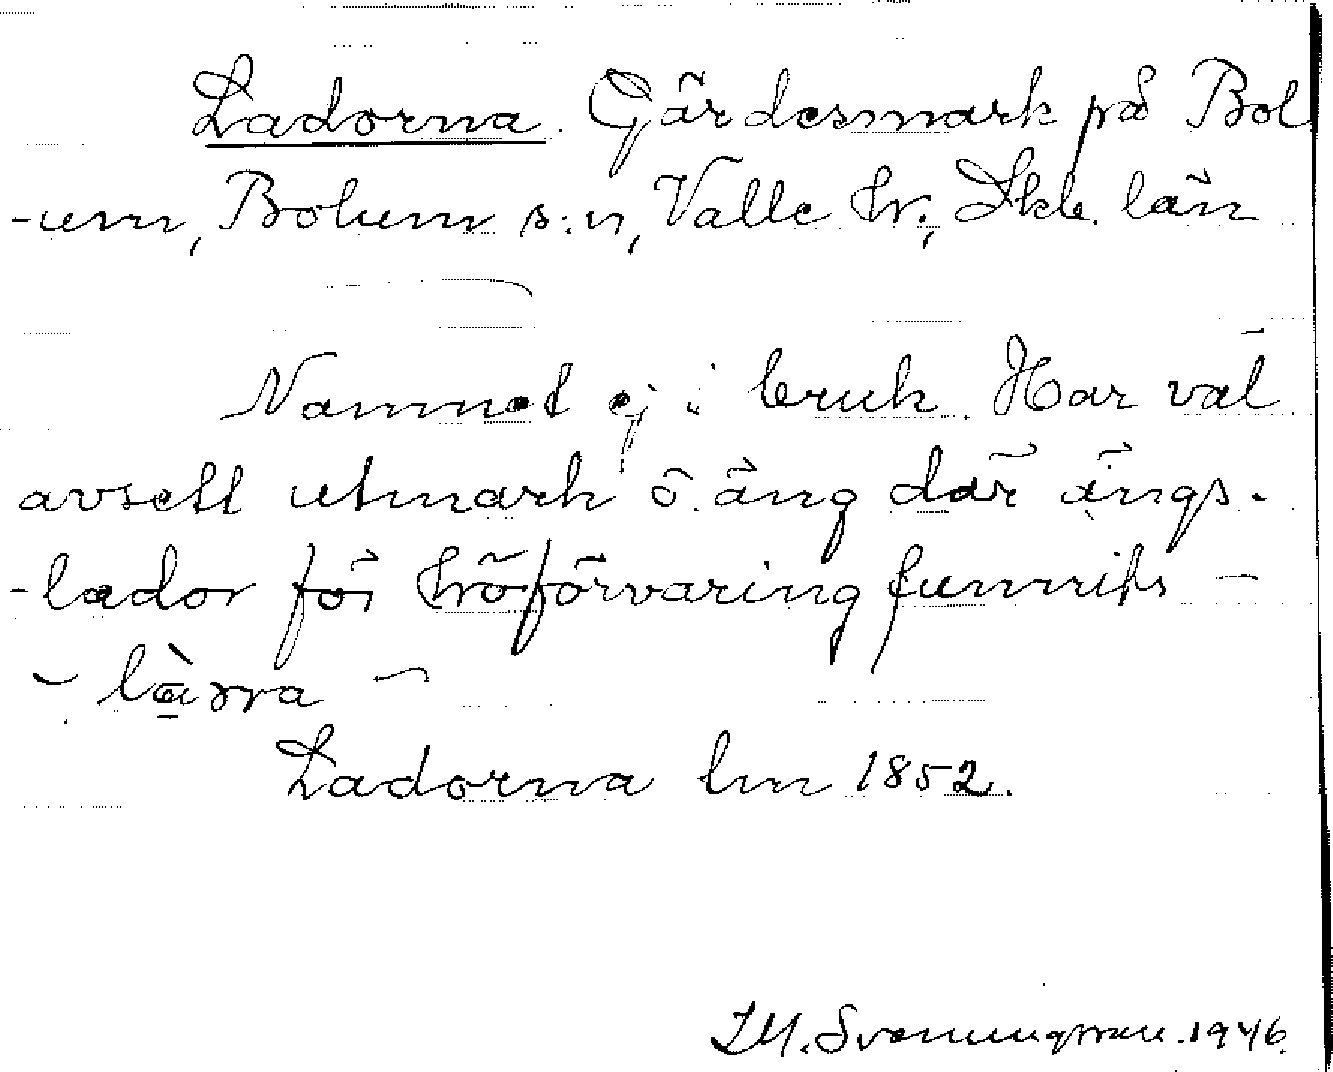 Ladorna. Gärdesmark på Bol
-um, Bolum s:n, Valle hr., Skb. län
Namnet ej i bruk. Har väl
avsett utmark o. äng där ängs-
-lador för höförvaring funnits -
- làɷra -
Ladorna lm 1852.
J.M. Svenungsson. 1946.